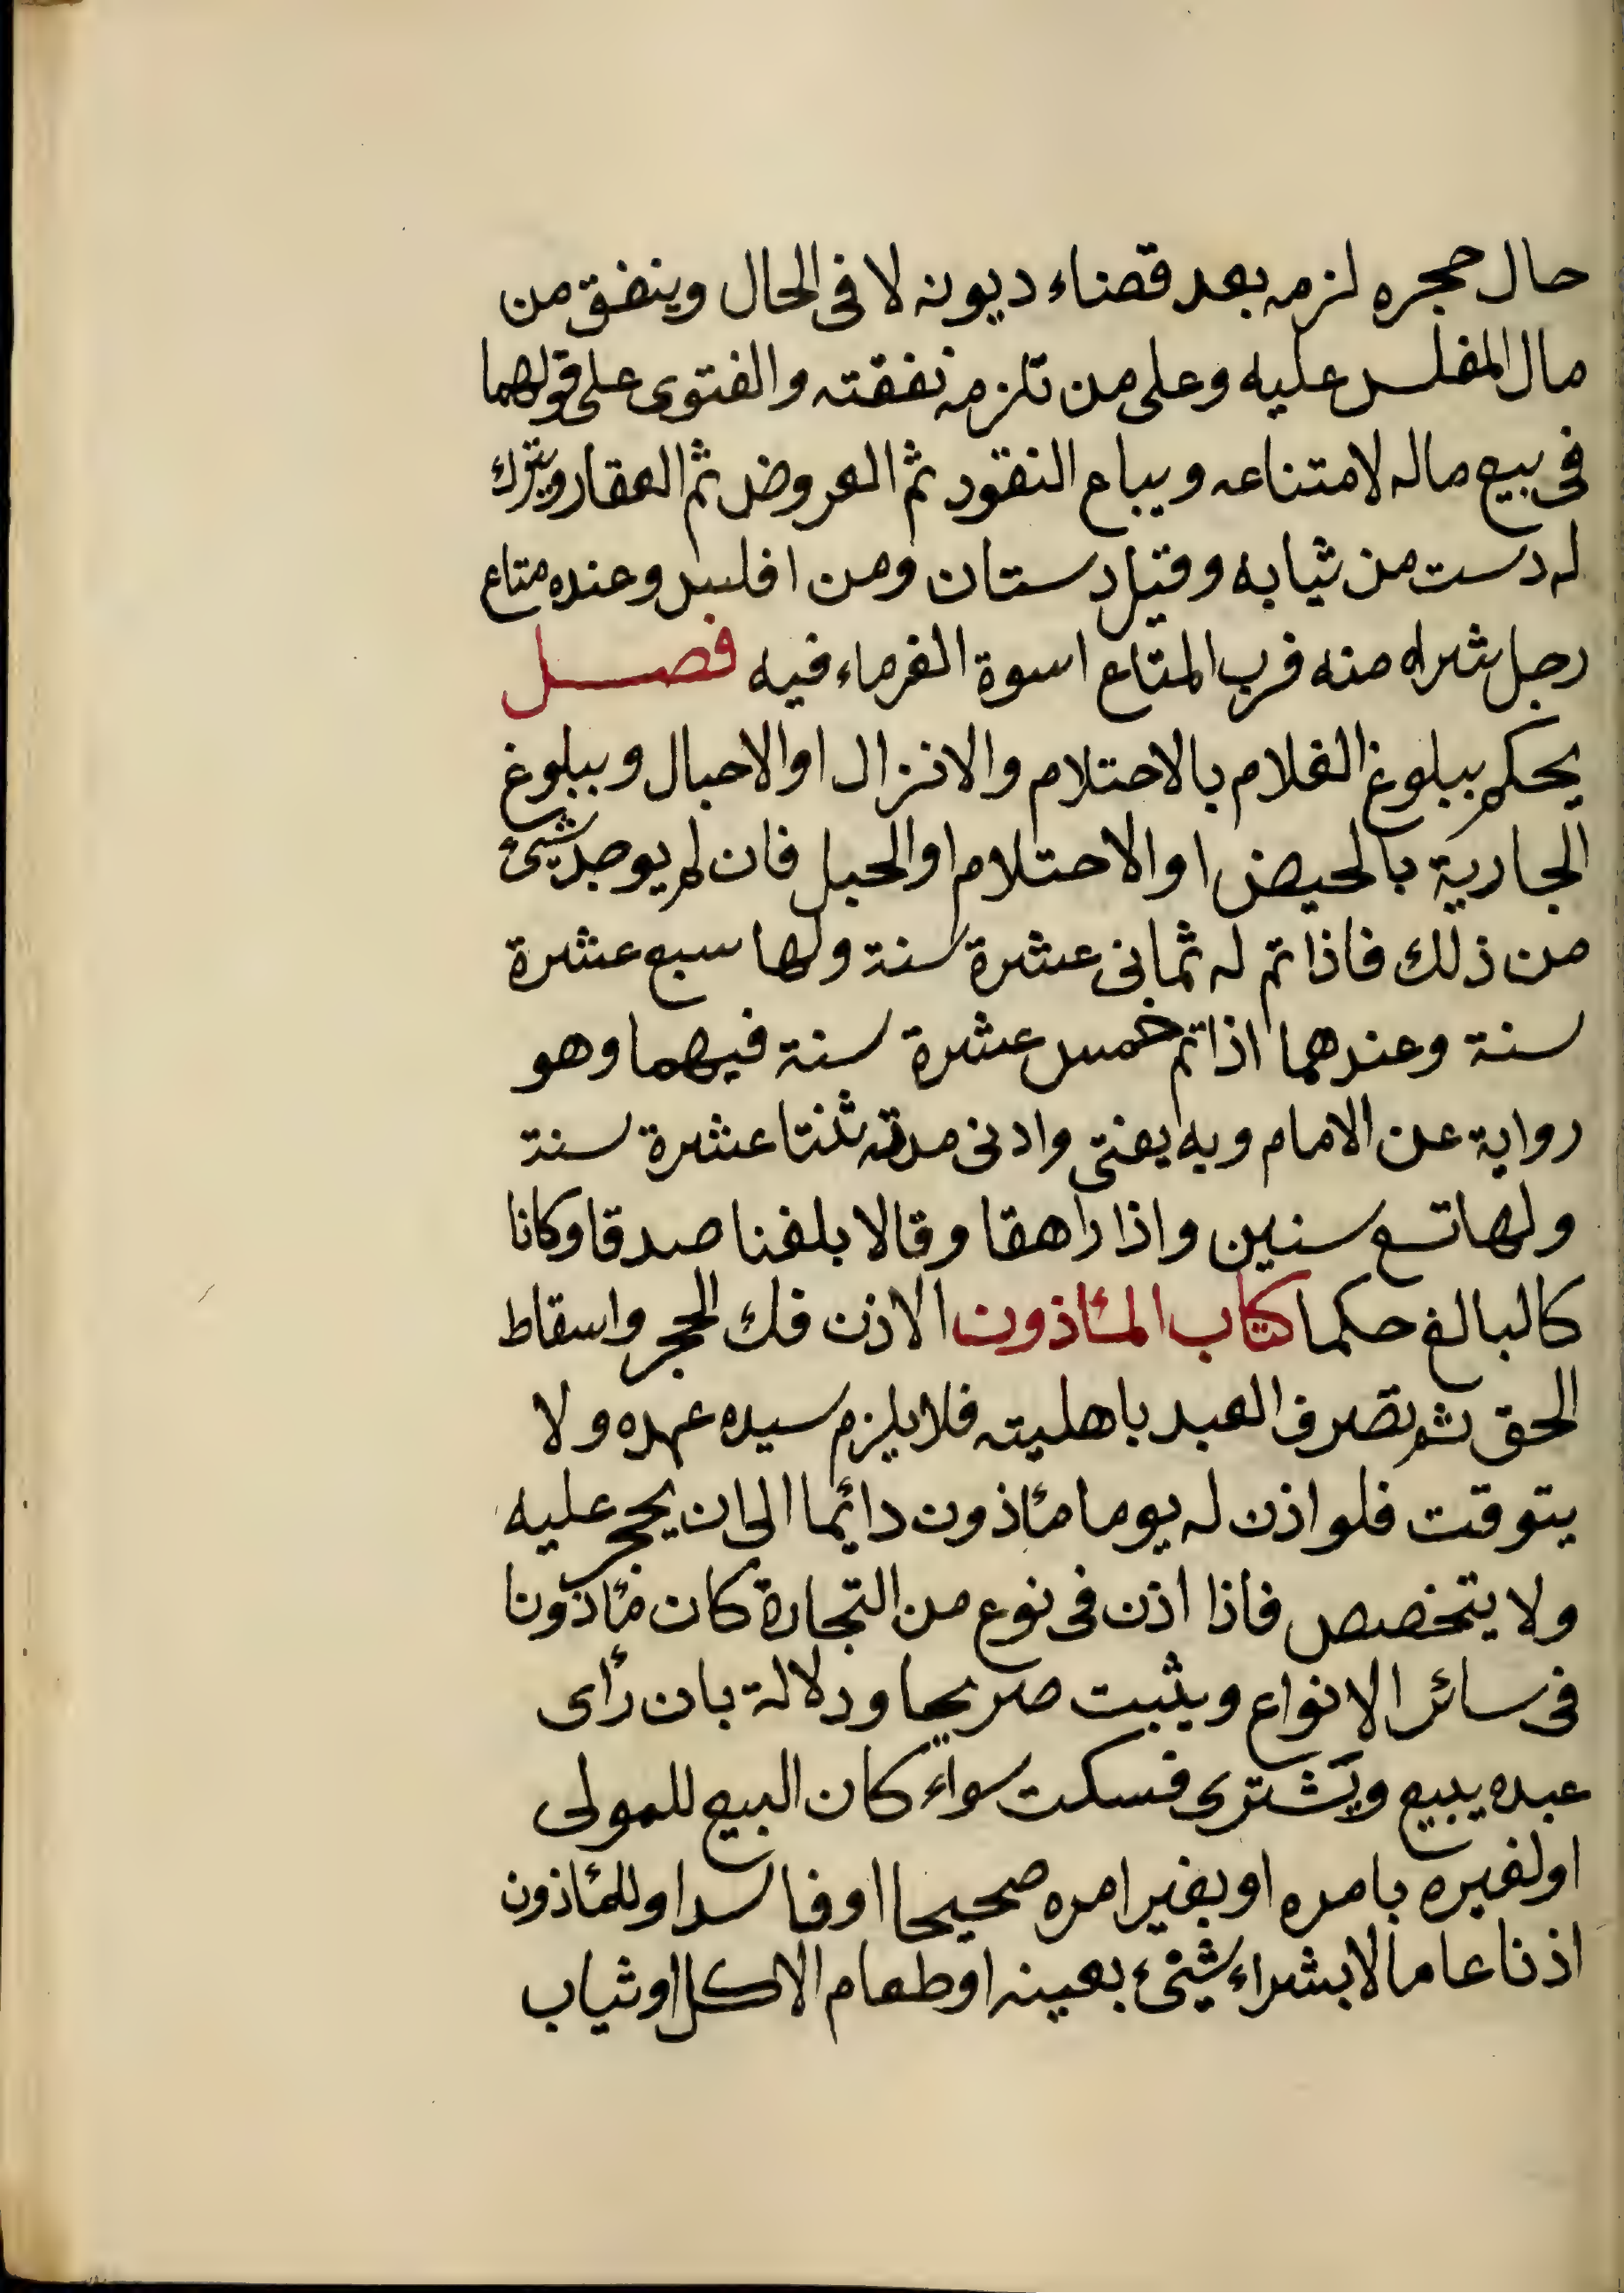 حال حجره لزمه بعد قضاء ديونه لا فى الحال وينفق من
مال المفلس عليه وعلى من تلزمه نفقته والفتوى على قولهما
فى بيع ماله لامتناعه ويباع النقود ثم العروض ثم العقار ويترك
له دست من ثيابه وقيل دستان ومن افلس وعنده متاع
رجل شراه منه فرب المتاع اسوة الغرماء فيه فصل
يحكم ببلوغ الغلام بالاحتلام والانزال او الاحبال وببلوغ
الجارية بالحيض او الاحتلام او الحبل فان لم يوجد شيئ
من ذلك فاذا تم له ثمانى عشرة سنة ولها سبع عشرة
سنة وعندهما اذا تم خمس عشرة سنة فيهما وهو
رواية عن الامام وبه يفتى وادنى مدته ثنتا عشرة سنة
ولها تسع سنين واذا راهقا وقالا بلغنا صدقا وكانا
كالبالغ حكما كتاب المئاذون الاذن فك الحجر واسقاط
الحق ثم تصرف العبد باهليته فلا يلزم سيده عهده ولا
يتوقت فلو اذن له يوما مئاذون دائما الى ان يحجر عليه
ولا يتخصص فاذا اذن فى نوع من التجارة كان مئاذونا
فى سائر الانواع ويثبت صريحا ودلالة بان رأى
عبده يبيع ويشترى فسكت سواء كان البيع للمولى
او لغيره بامره او بغير امره صحيحا او فاسدا وللمئاذون
اذنا عاما لا بشراء شيئ بعينه او طعام الاكل او ثياب